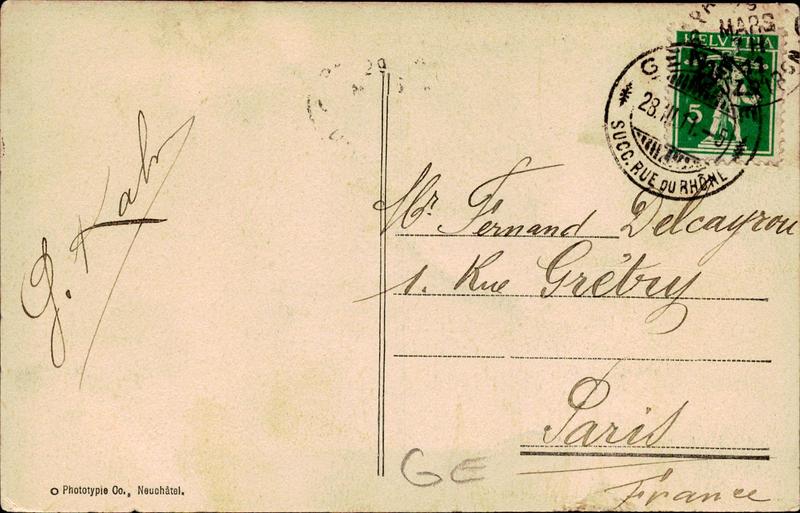 HELVETIA
5
28.III.11.-5
SUCC. RUE DU RHÔNE
MARS
G. Kahn
Mr Fernand Delcayrou
1. Rue Grétry
Paris
France
GE
Phototypie Co., Neuchâtel.